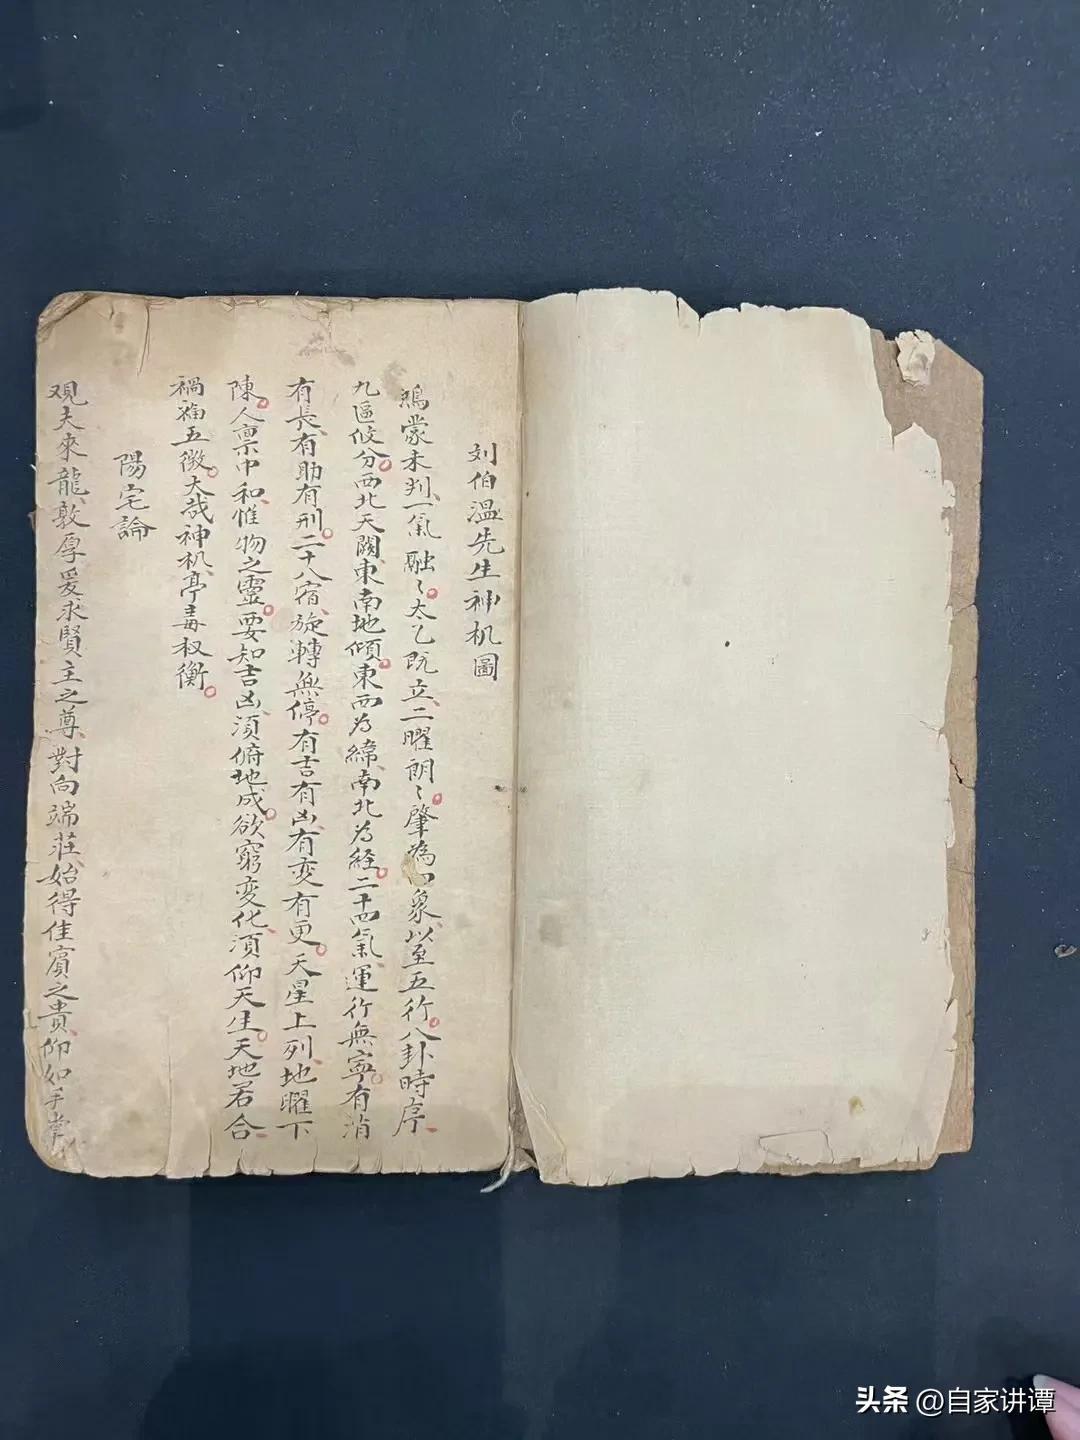 刘伯温先生神机圖
鴻蒙未判、一氣融〻。太乙既立、二曜朗〻。肇為四象、以至五行。八卦時序、
九區攸分。西北天闕、東南地傾。東西为緯、南北为経。二十四氣、運行無寧。有消
有長、有助有刑。二十八宿、旋轉無停。有吉有凶、有变有更。天星上列、地曜下
陳。人禀中和、惟物之靈。要知吉凶、須俯地成。欲窮变化、須仰天生。天地若合、
禍福五徴。大哉神机、亭毒权衡。
陽宅論
观夫來龍敦厚、爰求賢主之尊、對向端莊、始得佳賓之貴、仰如手掌
头条 @自家讲谭